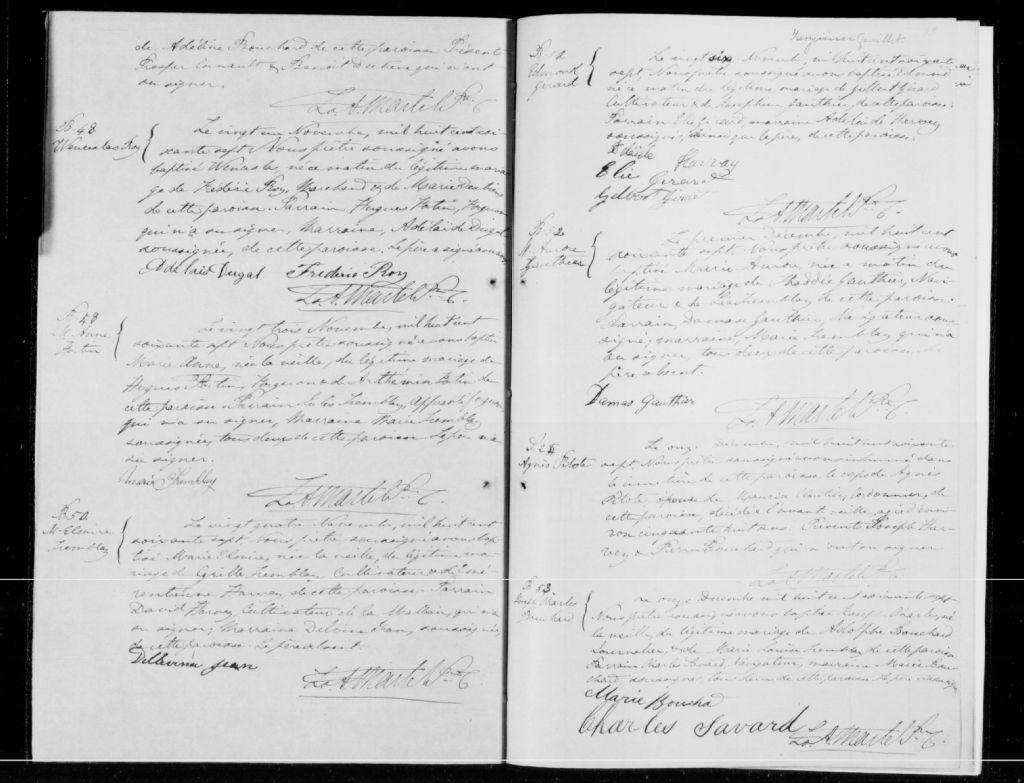 de Adéline Bouchard de cette paroisse Présent
Prosper & Benoit qui n'ont
su signer.
Ls A. Martel Ptre
B 48
Wenceslas Roy
Le vingt un Novembre, mil huit cent soi-
xante sept Nous prêtre soussigné avons
baptisé né ce matin du légitime maria-
ge de Fédéric Roy, Marchand & de Marie
de cette paroisse. Parrain Hugues Fortin,
qui n'a su signer, Marraine, Adélaïde Dugal
soussignée, de cette paroisse. Le père signe
Adelaid Dugal Frederic Roy
Ls A. Martel Ptre
B 49
M. Anne
Fortin
Le vingt trois Novembre, mil huit cent
soixante sept Nous prêtre soussigné avons baptisé
Marie Anne, née la veille, du légitime mariage de
Hugues Fortin, & de Arthémise de
cette paroisse Parrain Jules Tremblay,
qui n'a su signer, Marraine Marie Tremblay
soussignée, tous deux de cette paroisse Le père n'a
su signer.
Maria Tremblay
Ls A. Martel Ptre
B 50
M. Elmire
Tremblay
Le vingt quatre Novembre, mil huit cent
soixante sept Nous prêtre soussigné avons bap-
tisé Marie Elmire, née la veille, du légitime ma-
riage de Cyrille Tremblay Cultivateur &
Harvey, de cette paroisse. Parrain
David Harvey, Cultivateur de la Malbaie, qui n'a
su signer; Marraine Delvina Jean, soussignée,
de cette paroisse. Le père absent.
Dellevina Jean
Ls A. Martel Ptre
B 51
Edmond
Girard
Le vingt six Novembre, mil huit cent soixante
sept, Nous prêtre soussigné avons baptisé Edmond
né ce matin du légitime mariage de Gilbert Girard
Cultivateur & de Josephine Gauthier, de cette paroisse.
Parrain Elie Girard, marraine Adélaïde Harvey
soussignés, ainsi que le père, de cette paroisse.
Adélaïde Harvay
Elie Girard
Gilbert Girard
Ls A. Martel Ptre
B. 52
M. Aurore
Gauthier
Le premier Décembre, mil huit cent
soixante sept Nous prêtre soussigné avons
baptisé Marie Aurore, née ce matin du
légitime mariage de Gauthier, Navi-
gateur & de Tremblay, de cette paroisse.
Parrain, Damase Gauthier, Navigateur sous-
signé, marraine, Marie Tremblay qui n'a
su signer, tous deux de cette paroisse. Le
père absent.
Damas Gauthier
Ls A. Martel Ptre
S. 25
Agnès Pilote
Le onze Décembre, mil huit cent soixante
sept Nous prêtre soussigné avons inhumé dans
le cimetière de cette paroisse le corps de Agnès
Pilote épouse de Cordonnier, de
cette paroisse, décédée l'avant veille, âgée d'envi-
ron cinquante huit ans. Présents Joseph Har-
vey & Pierre Bouchard qui n'ont su signer
Ls A. Martel Ptre
B 53
Joseph Charles
Bouchard
Le onze Décembre mil huit cent soixante sept
Nous prêtre soussigné avons baptisé Joseph Charles, né
la veille, du légitime mariage de Adolphe Bouchard
Journalier, & de Marie Louise Tremblay de cette paroisse
Parrain Charles Savard, Navigateur, marraine Marie Bou-
chard, soussignés, tous deux de cette paroisse Le père
Marie Bouchard
Charles Savard
Ls A. Martel Ptre